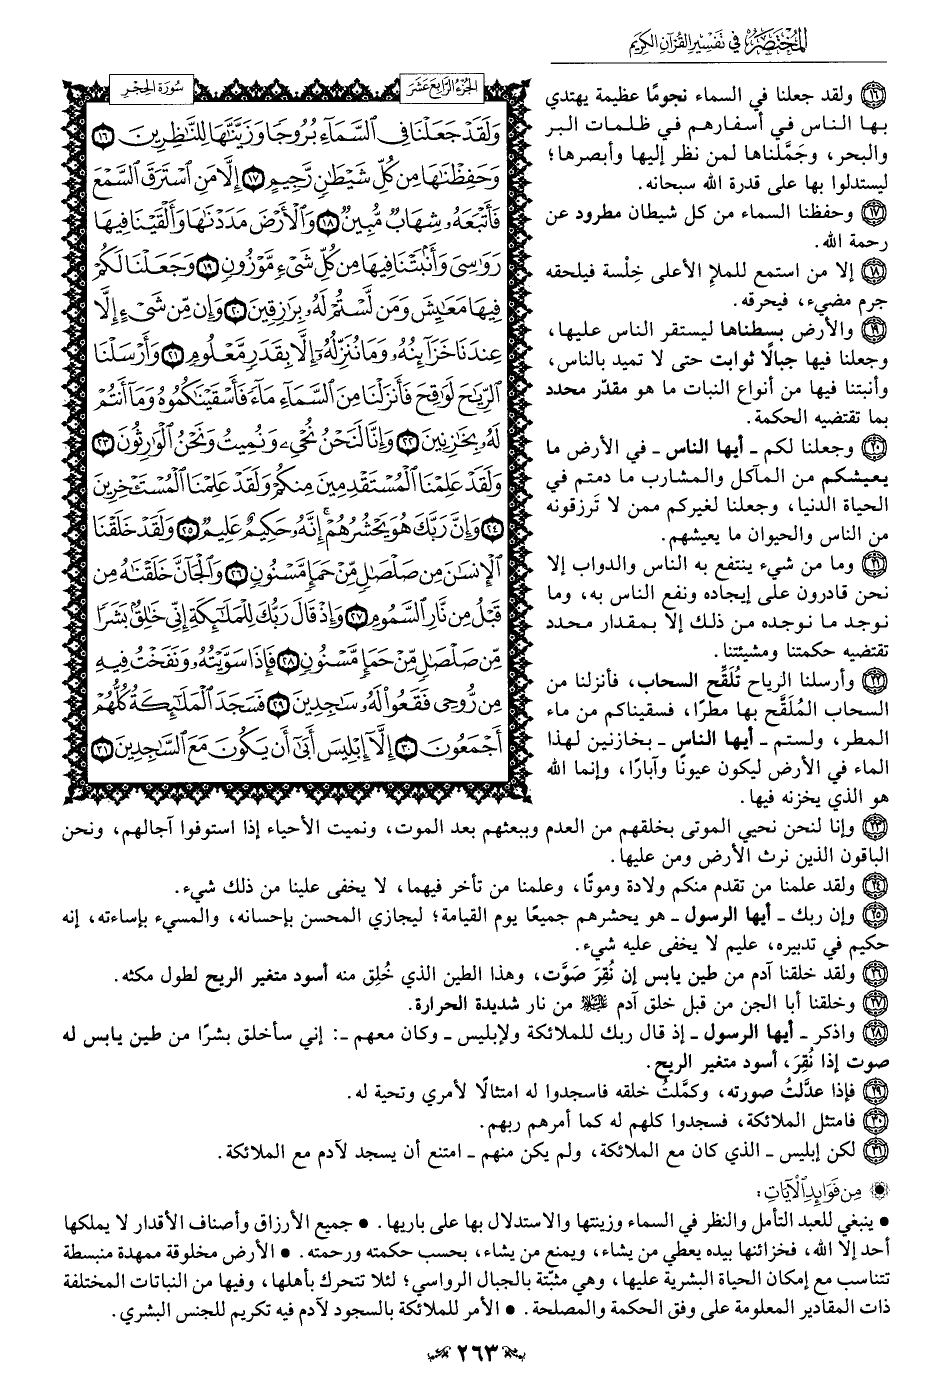 المختصر في تفسير القرآن الكريم
الجزء الرابع عشر
سورة الحجر
وَلَقَدْ جَعَلْنَا فِي السَّمَآءِ بُرُوجًا وَزَيَّنَّٰهَا لِلنَّٰظِرِينَ ١٦
وَحَفِظْنَٰهَا مِن كُلِّ شَيْطَٰنٍ رَّجِيمٍ ١٧ إِلَّا مَنِ اسْتَرَقَ السَّمْعَ
فَأَتْبَعَهُۥ شِهَابٌ مُّبِينٌ ١٨ وَالْأَرْضَ مَدَدْنَٰهَا وَأَلْقَيْنَا فِيهَا
رَوَٰسِيَ وَأَنۢبَتْنَا فِيهَا مِن كُلِّ شَيْءٍ مَّوْزُونٍ ١٩ وَجَعَلْنَا لَكُمْ
فِيهَا مَعَٰيِشَ وَمَن لَّسْتُمْ لَهُۥ بِرَٰزِقِينَ ٢٠ وَإِن مِّن شَيْءٍ إِلَّا
عِندَنَا خَزَآئِنُهُۥ وَمَا نُنَزِّلُهُۥٓ إِلَّا بِقَدَرٍ مَّعْلُومٍ ٢١ وَأَرْسَلْنَا
الرِّيَٰحَ لَوَٰقِحَ فَأَنزَلْنَا مِنَ السَّمَآءِ مَآءً فَأَسْقَيْنَٰكُمُوهُ وَمَآ أَنتُمْ
لَهُۥ بِخَٰزِنِينَ ٢٢ وَإِنَّا لَنَحْنُ نُحْيِۦ وَنُمِيتُ وَنَحْنُ الْوَٰرِثُونَ ٢٣
وَلَقَدْ عَلِمْنَا الْمُسْتَقْدِمِينَ مِنكُمْ وَلَقَدْ عَلِمْنَا الْمُسْتَـْٔخِرِينَ
٢٤ وَإِنَّ رَبَّكَ هُوَ يَحْشُرُهُمْ ۚ إِنَّهُۥ حَكِيمٌ عَلِيمٌ ٢٥ وَلَقَدْ خَلَقْنَا
الْإِنسَٰنَ مِن صَلْصَٰلٍ مِّنْ حَمَإٍ مَّسْنُونٍ ٢٦ وَالْجَآنَّ خَلَقْنَٰهُ مِن
قَبْلُ مِن نَّارِ السَّمُومِ ٢٧ وَإِذْ قَالَ رَبُّكَ لِلْمَلَٰٓئِكَةِ إِنِّي خَٰلِقٌۢ بَشَرًا
مِّن صَلْصَٰلٍ مِّنْ حَمَإٍ مَّسْنُونٍ ٢٨ فَإِذَا سَوَّيْتُهُۥ وَنَفَخْتُ فِيهِ
مِن رُّوحِي فَقَعُوا لَهُۥ سَٰجِدِينَ ٢٩ فَسَجَدَ الْمَلَٰٓئِكَةُ كُلُّهُمْ
أَجْمَعُونَ ٣٠ إِلَّآ إِبْلِيسَ أَبَىٰٓ أَن يَكُونَ مَعَ السَّٰجِدِينَ ٣١
١٦ ولقد جعلنا في السماء نجومًا عظيمة يهتدي
بها الناس في أسفارهم في ظلمات البر
والبحر، وجَمَّلناها لمن نظر إليها وأبصرها؛
ليستدلوا بها على قدرة الله سبحانه.
١٧ وحفظنا السماء من كل شيطان مطرود عن
رحمة الله.
١٨ إلا من استمع للملإ الأعلى خِلْسة فيلحقه
جرم مضيء، فيحرقه.
١٩ والأرض بسطناها ليستقر الناس عليها،
وجعلنا فيها جبالًا ثوابت حتى لا تميد بالناس،
وأنبتنا فيها من أنواع النبات ما هو مقدّر محدد
بما تقتضيه الحكمة.
٢٠ وجعلنا لكم - أيها الناس - في الأرض ما
يعيشكم من المآكل والمشارب ما دمتم في
الحياة الدنيا، وجعلنا لغيركم ممن لا تَرزقونه
من الناس والحيوان ما يعيشهم.
٢١ وما من شيء ينتفع به الناس والدواب إلا
نحن قادرون على إيجاده ونفع الناس به، وما
نوجد ما نوجده من ذلك إلا بمقدار محدد
تقتضيه حكمتنا ومشيئتنا.
٢٢ وأرسلنا الرياح تُلَقِّح السحاب، فأنزلنا من
السحاب المُلَقَّح بها مطرًا، فسقيناكم من ماء
المطر، ولستم - أيها الناس - بخازنين لهذا
الماء في الأرض ليكون عيونًا وآبارًا، وإنما الله
هو الذي يخزنه فيها.
٢٣ وإنا لنحن نحيي الموتى بخلقهم من العدم وببعثهم بعد الموت، ونميت الأحياء إذا استوفوا آجالهم، ونحن
الباقون الذين نرث الأرض ومن عليها.
٢٤ ولقد علمنا من تقدم منكم ولادة وموتًا، وعلمنا من تأخر فيهما، لا يخفى علينا من ذلك شيء.
٢٥ وإن ربك - أيها الرسول - هو يحشرهم جميعًا يوم القيامة؛ ليجازي المحسن بإحسانه، والمسيء بإساءته، إنه
حكيم في تدبيره، عليم لا يخفى عليه شيء.
٢٦ ولقد خلقنا آدم من طين يابس إن نُقِرَ صَوَّت، وهذا الطين الذي خُلِق منه أسود متغير الريح لطول مكثه.
٢٧ وخلقنا أبا الجن من قبل خلق آدم عليه السلام من نار شديدة الحرارة.
٢٨ واذكر - أيها الرسول - إذ قال ربك للملائكة ولإبليس - وكان معهم -: إني سأخلق بشرًا من طين يابس له
صوت إذا نُقِرَ، أسود متغير الريح.
٢٩ فإذا عدلتُ صورته، وكمَّلتُ خلقه فاسجدوا له امتثالًا لأمري وتحية له.
٣٠ فامتثل الملائكة، فسجدوا كلهم له كما أمرهم ربهم.
٣١ لكن إبليس - الذي كان مع الملائكة، ولم يكن منهم - امتنع أن يسجد لآدم مع الملائكة.
من فوائد الآيات:
• ينبغي للعبد التأمل والنظر في السماء وزينتها والاستدلال بها على باريها. • جميع الأرزاق وأصناف الأقدار لا يملكها
أحد إلا الله، فخزائنها بيده يعطي من يشاء، ويمنع من يشاء، بحسب حكمته ورحمته. • الأرض مخلوقة ممهدة منبسطة
تتناسب مع إمكان الحياة البشرية عليها، وهي مثبّتة بالجبال الرواسي؛ لئلا تتحرك بأهلها، وفيها من النباتات المختلفة
ذات المقادير المعلومة على وفق الحكمة والمصلحة. • الأمر للملائكة بالسجود لآدم فيه تكريم للجنس البشري.
٢٦٣